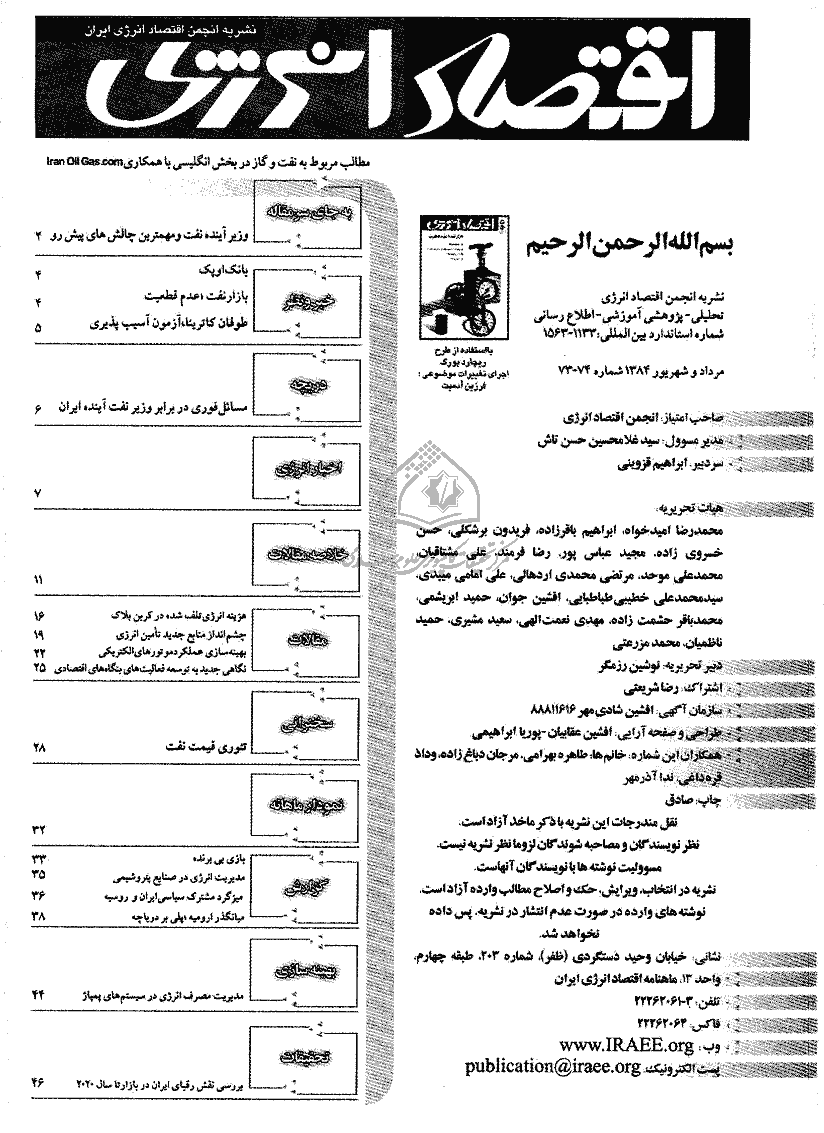 نشریه انجمن اقتصاد انرژی ایران
اقتصاد انرژی
مطالب مربوط به نفت و گاز در بخش انگلیسی با همکاری Iran Oil Gas.com
بسم الله الرحمن الرحیم
نشریه انجمن اقتصاد انرژی
تحلیلی- پژوهشی آموزشی- اطلاع رسانی
شماره استاندارد بین المللی: ۱۱۳۳-۱۵۶۳
مرداد و شهریور ۱۳۸۴ شماره ۷۴-۷۳
اقتصاد انرژی
بااستفاده از طرح
ریچارد بورک
اجرای تغییرات موضوعی:
فرزین آدمیت
صاحب امتیاز: انجمن اقتصاد انرژی
مدیر مسوول: سید غلامحسین حسن تاش
سردبیر: ابراهیم قزوینی
هیات تحریریه:
محمدرضا امیدخواه، ابراهیم باقرزاده، فریدون برشکلی، حسن
خسروی زاده، مجید عباس پور، رضا فرمند، علی مشتاقیان،
محمدعلی موحد، مرتضی محمدی اردهالی، علی امامی میبدی،
سیدمحمدعلی خطیبی طباطبایی، افشین جوان، حمید ابریشمی،
محمدباقر حشمت زاده، مهدی نعمت الهی، سعید مشیری، حمید
ناظمیان، محمد مزرعتی
دبیر تحریریه: نوشین رزمگر
اشتراک: رضا شریعتی
سازمان آگهی: افشین شادی مهر ۸۸۸۱۱۶۱۶
طراحی و صفحه آرایی: افشین عقابیان -پوریا ابراهیمی
همکاران این شماره: خانم ها: طاهره بهرامی، مرجان دباغ زاده، وداد
قره داغی، ندا آذرمهر
چاپ: صادق
نقل مندرجات این نشریه با ذکر ماخذ آزاد است.
نظر نویسندگان و مصاحبه شوندگان لزوما نظر نشریه نیست.
مسوولیت نوشته ها با نویسندگان آنهاست.
نشریه در انتخاب، ویرایش، حک و اصلاح مطالب وارده آزاد است.
نوشته های وارده در صورت عدم انتشار در نشریه، پس داده
نخواهد شد.
نشانی: خیابان وحید دستگردی (ظفر)، شماره ۲۰۳، طبقه چهارم،
واحد ۱۳، ماهنامه اقتصاد انرژی ایران
تلفن: ۳-۲۲۲۶۲۰۶۱
فاکس: ۲۲۲۶۲۰۶۴
وب: www.IRAEE.org
پست الکترونیک: publication@iraee.org
به جای سرمقاله
وزیر آینده نفت و مهمترین چالش های پیش رو ۲
خبر و نظر
بانک اوپک ۴
بازار نفت ؛عدم قطعیت ۴
طوفان کاترینا،آزمون آسیب پذیری ۵
دریچه
مسائل فوری در برابر وزیر نفت آینده ایران ۶
اخبار انرژی
۷
خلاصه مقالات
۱۱
مقالات
هزینه انرژی تلف شده در کربن بلاک ۱۶
چشم انداز منابع جدید تأمین انرژی ۱۹
بهینه سازی عملکرد موتورهای الکتریکی ۲۲
نگاهی جدید به توسعه فعالیت های بنگاه های اقتصادی ۲۵
سخنرانی
تئوری قیمت نفت ۲۸
نمودار ماهانه
۳۲
گزارش
بازی بی برنده ۳۳
مدیریت انرژی در صنایع پتروشیمی ۳۵
میزگرد مشترک سیاسی ایران و روسیه ۳۶
میانگذر ارومیه ؛پلی بر دریاچه ۳۸
بهینه سازی
مدیریت مصرف انرژی در سیستم های پمپاژ ۴۴
تحقیقات
بررسی نقش رقبای ایران در بازار تا سال ۲۰۲۰ ۴۶